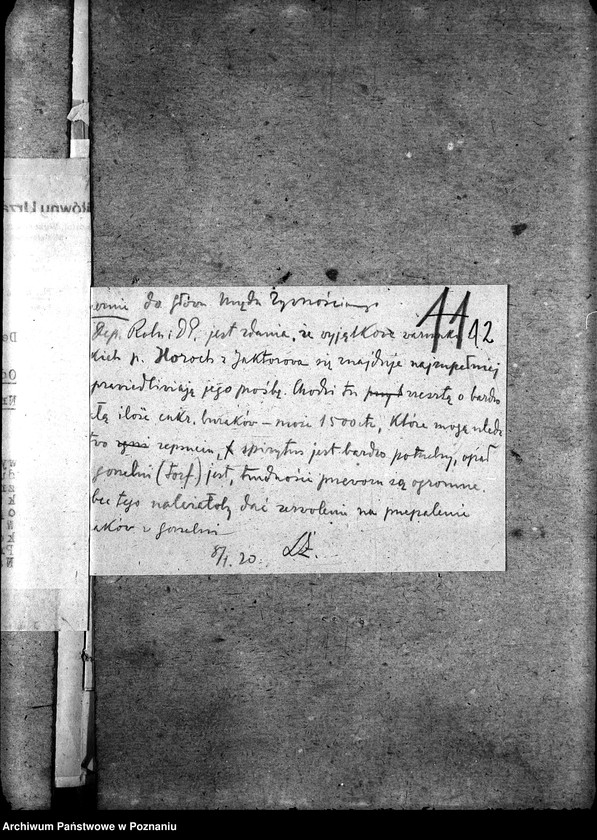 łówny Urzą
ernie do Główn Urzędu Żywnościowego
11 12
Dep. Roln. i DP. jest zdania, że wyjątkowe warunki
kich p. Horoch z Jaktorowa się znajduje najzupełniej
prawiedliwiają jego prośbę. Chodzi tu zresztą o bardzo
łą ilość cukr. buraków – może 1500 ctr, które mogą uledz
two zepsuciu, spirytus jest bardzo potrzebny, opał
gorzelni (torf) jest, trudności przewozu są ogromne.
bec tego należałoby dać zezwolenie na przepalenie
aków w gorzelni
8/1. 20.
Archiwum Państwowe w Poznaniu